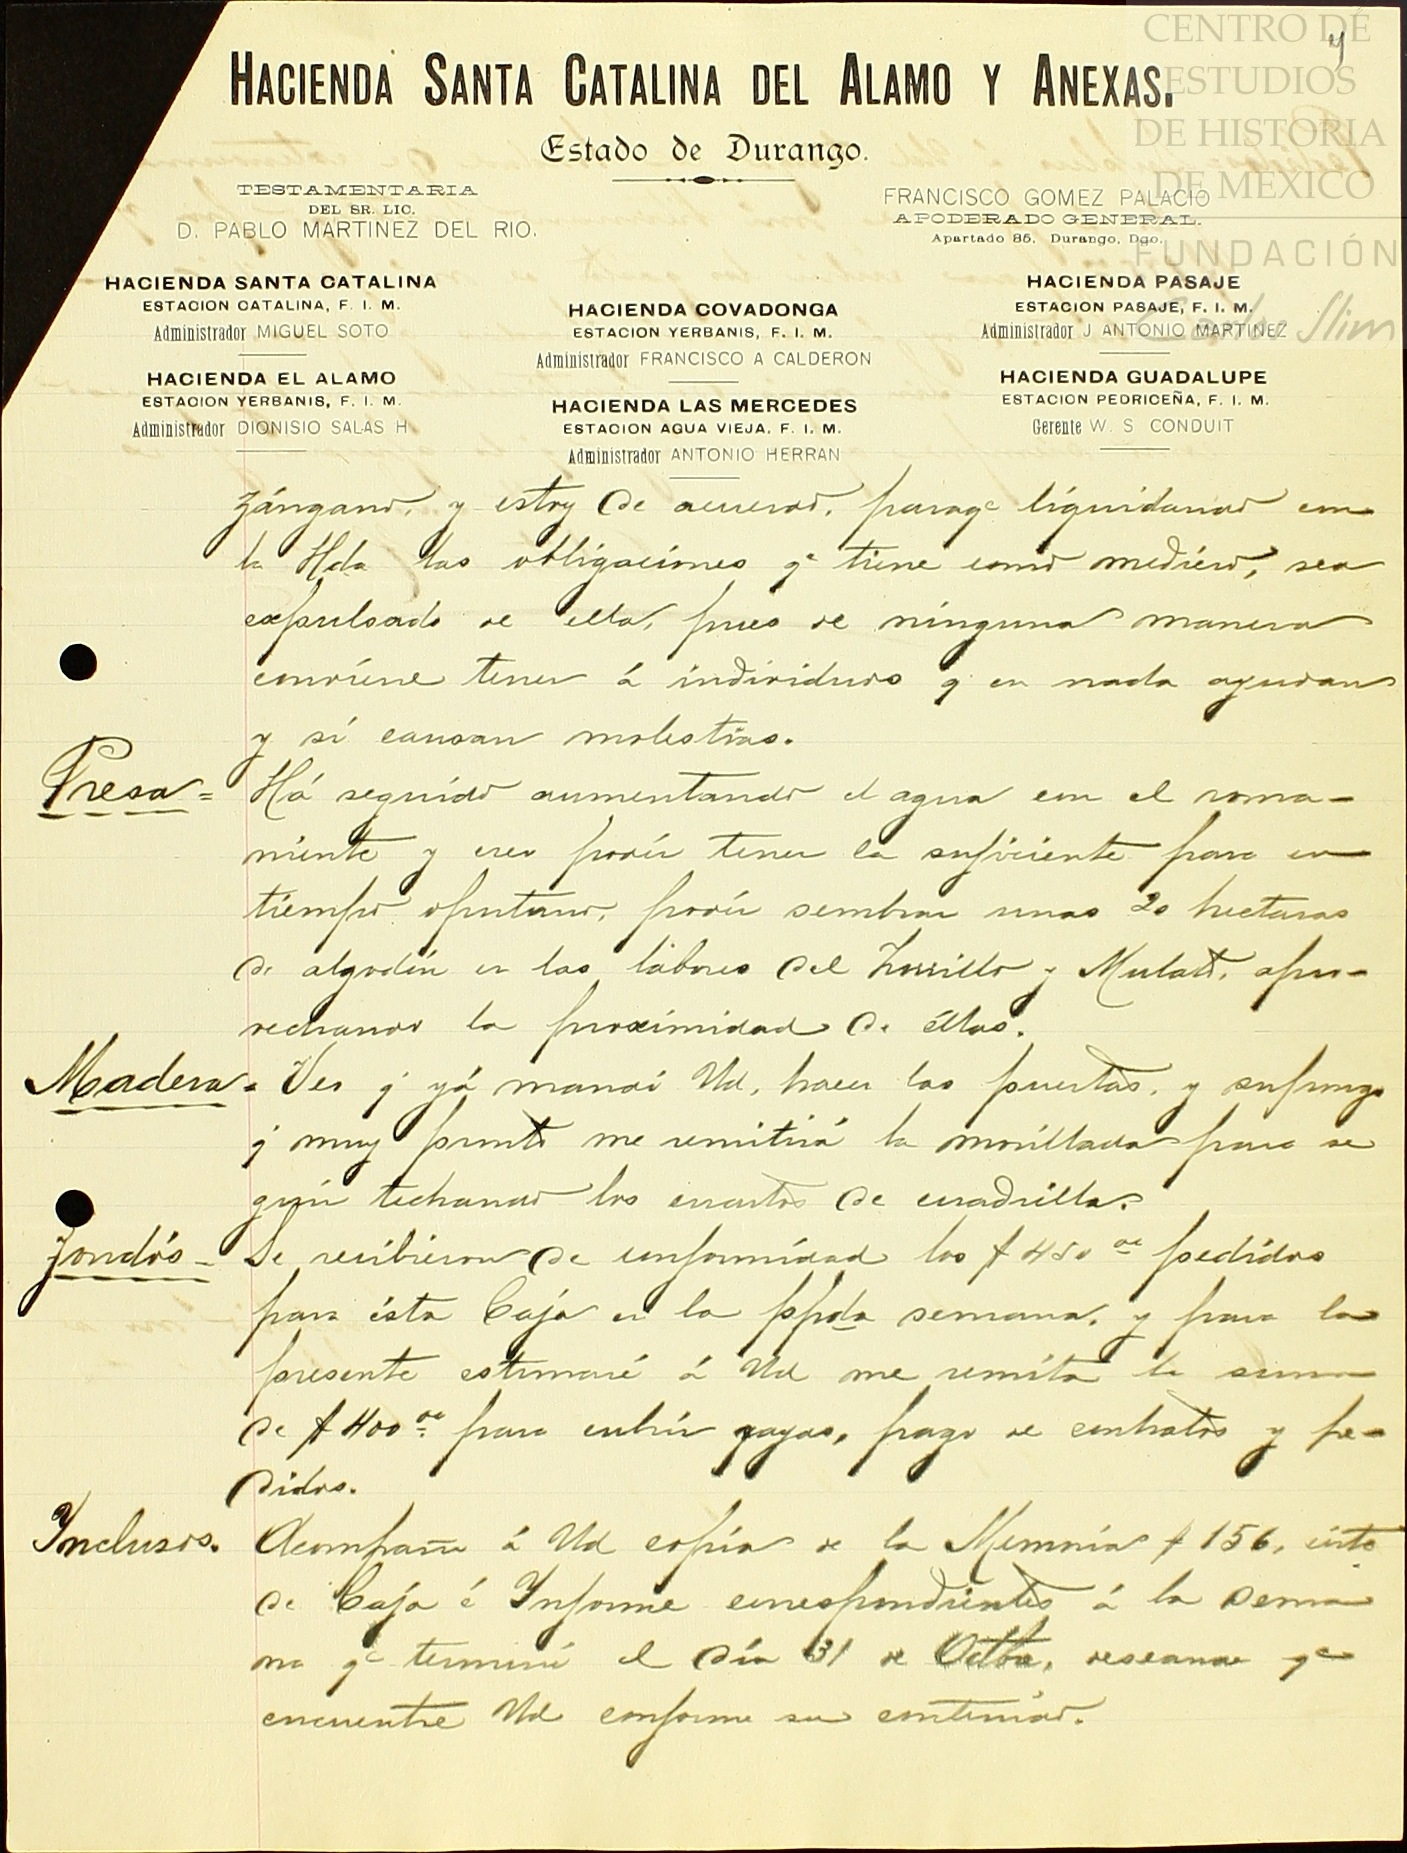 CENTRO DE
ESTUDIOS
DE HISTORIA
DE MEXICO
FUNDACIÓN
Carlos Slim
HACIENDA SANTA CATALINA DEL ALAMO Y ANEXAS.
Estado de Durango.
TESTAMENTARIA
DEL SR. LIC.
D. PABLO MARTINEZ DEL RIO.
FRANCISCO GOMEZ PALACIO
APODERADO GENERAL.
Apartado 85. Durango, Dgo.
HACIENDA SANTA CATALINA
ESTACION CATALINA, F. I. M.
Administrador MIGUEL SOTO
HACIENDA EL ALAMO
ESTACION YERBANIS, F. I. M.
Administrador DIONISIO SALAS H.
HACIENDA COVADONGA
ESTACION YERBANIS, F. I. M.
Administrador FRANCISCO A CALDERON
HACIENDA LAS MERCEDES
ESTACION AGUA VIEJA. F. I. M.
Administrador ANTONIO HERRAN
HACIENDA PASAJE
ESTACION PASAJE, F. I. M.
Administrador J ANTONIO MARTINEZ
HACIENDA GUADALUPE
ESTACION PEDRICEÑA, F. I. M.
Gerente W. S CONDUIT
zángano, y estoy de acuerdo, paraqe liquidando con
la Hda las obligaciones qe tiene como mediero, sea
expulsado de ella, pues de ninguna manera
conviene tener á individuos q en nada ayudan
y sí causan molestias.
Presa = Há seguido aumentando el agua con el rema-
niente y creo podér tener la suficiente para en
tiempo oportuno, podér sembrar unas 20 hectaras
de algodón en las labores del Zorrillo y Mulato, apro-
vechando la proximidad de éllas.
Madera = Veo q yá mandó Ud, hacer las puertas, y supongo
q muy pronto me remitirá la morillada para se
guir techando los cuartos de cuadrilla.
Fondós - Se recibieron de conformidad los $450 oo pedidos
para ésta Caja en la ppda semana, y para la
presente estimaré á Ud me remita la suma
de $400 oo para cubrir rayas, pago de contratos y pe-
didos.
Inclusos. Acompaño á Ud copia de la Memoria # 156, corte
de Caja é Informe correspondientes á la sema
na qe terminó el día 31 de Octbre, deseando qe
encuentre Ud conforme su contenido.